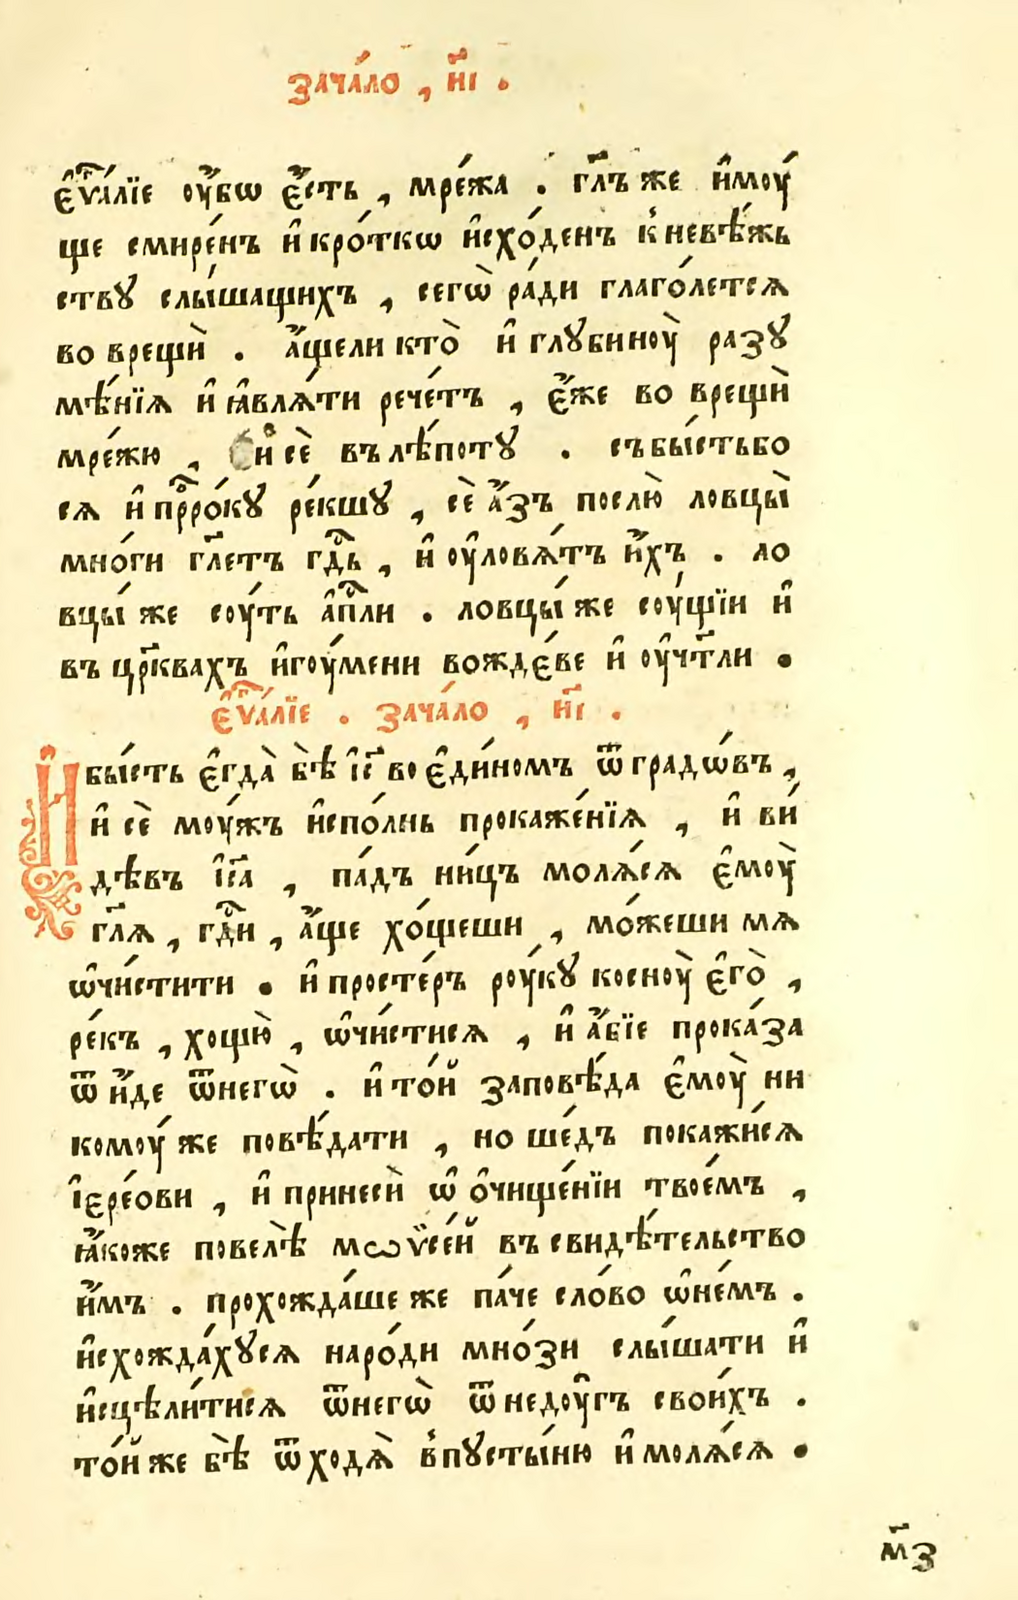 зача́ло , и҃і .
є҆ѵⷢ҇а́лїе оу҆́бѡ є҆́сть , мре́жа . гл҃ъ же и҆моу́
ще смире́нъ и҆ кро́ткѡ и҆схо́денъ к҆ невѣ́жь
ству слы́шащихъ , сегѡ̀ ра́ди глаго́лется
во врещѝ . а҆́щели кто̀ и҆ глубиноу̀ разу
мѣ́нїя и҆ ꙗ҆вля́ти рече́тъ , є҆́же во врещѝ
мре́жю , и҆ сѐ въ лѣ́поту . съ бы́сть бо
ся и҆ прⷪ҇ро́ку ре́кшу , сѐ а҆́зъ послю̀ ловцы̀
мно́ги гл҃етъ гдⷭ҇ь , и҆ оу҆ловя́тъ и҆́хъ . ло
вцы́ же соу́ть а҆пⷭ҇ли . ловцы́ же соу́щїи и҆
въ цр҃квахъ и҆гоу́мени вожде́ве и҆ оу҆чт҃ли .
є҆ѵⷢ҇а́лїе . зача́ло , и҃і .
И҆ бы́сть є҆гда̀ бѣ̀ і҆с҃ во є҆ди́номъ ѿ градѡ́въ ,
и҆ сѐ моу́жъ и҆спо́лнь прокаже́нїя , и҆ ви́
дѣвъ і҆с҃а , па́дъ ни́цъ моля́ся є҆моу̀
гл҃я , гдⷭ҇и , а҆́ще хо́щеши , мо́жеши мя
ѡ҆чи́стити . и҆ просте́ръ роу́ку косноу̀ є҆го̀ ,
ре́къ , хощю̀ , ѡ҆чи́стися , и҆ а҆́бїе прока́за
ѿ и҆́де ѿ негѡ̀ . и҆ то́й заповѣ́да є҆моу̀ ни
комоу́ же повѣ́дати , но ше́дъ покажи́ся
і҆ере́ови , и҆ принесѝ ѡ҆ ѻ҆чище́нїи твое́мъ ,
ꙗ҆́коже повелѣ̀ мѡѷсе́й въ свидѣ́тельство
и҆́мъ . прохожда́ше же па́че сло́во ѡ҆ не́мъ .
и҆схожда́хуся наро́ди мно́зи слы́шати и҆
и҆сцѣли́тися ѿ негѡ̀ ѿ недоу҆гъ свои́хъ .
то́й же бѣ̀ ѿ ходя̀ в҆ пусты́ню и҆ моля́ся .
м҃з